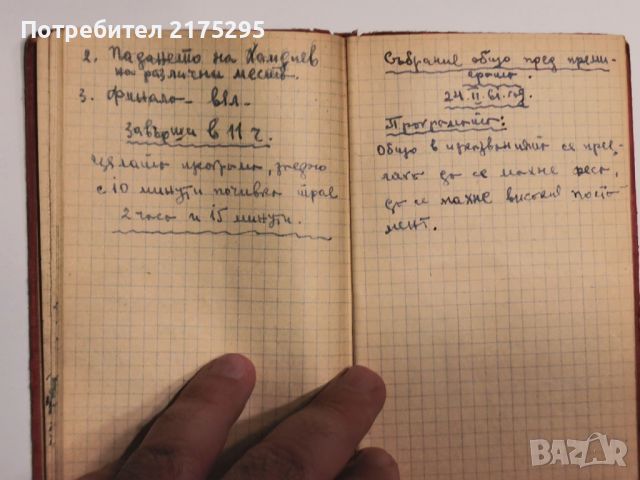 Потребител 2175295
2. Падането на Хамдиев
на различни места.
3. Финала - в 1 л. -
Завърши в 11 ч.
Цялата програма, заедно
с 10 минути почивка трае
2 часа и 15 минути.
Събрание общо пред преми-
ерата.
24.II.61.год.
Програмата:
Общо в изказванията се пред-
лага да се махне
да се махне високия поста-
мент.
BAZAR